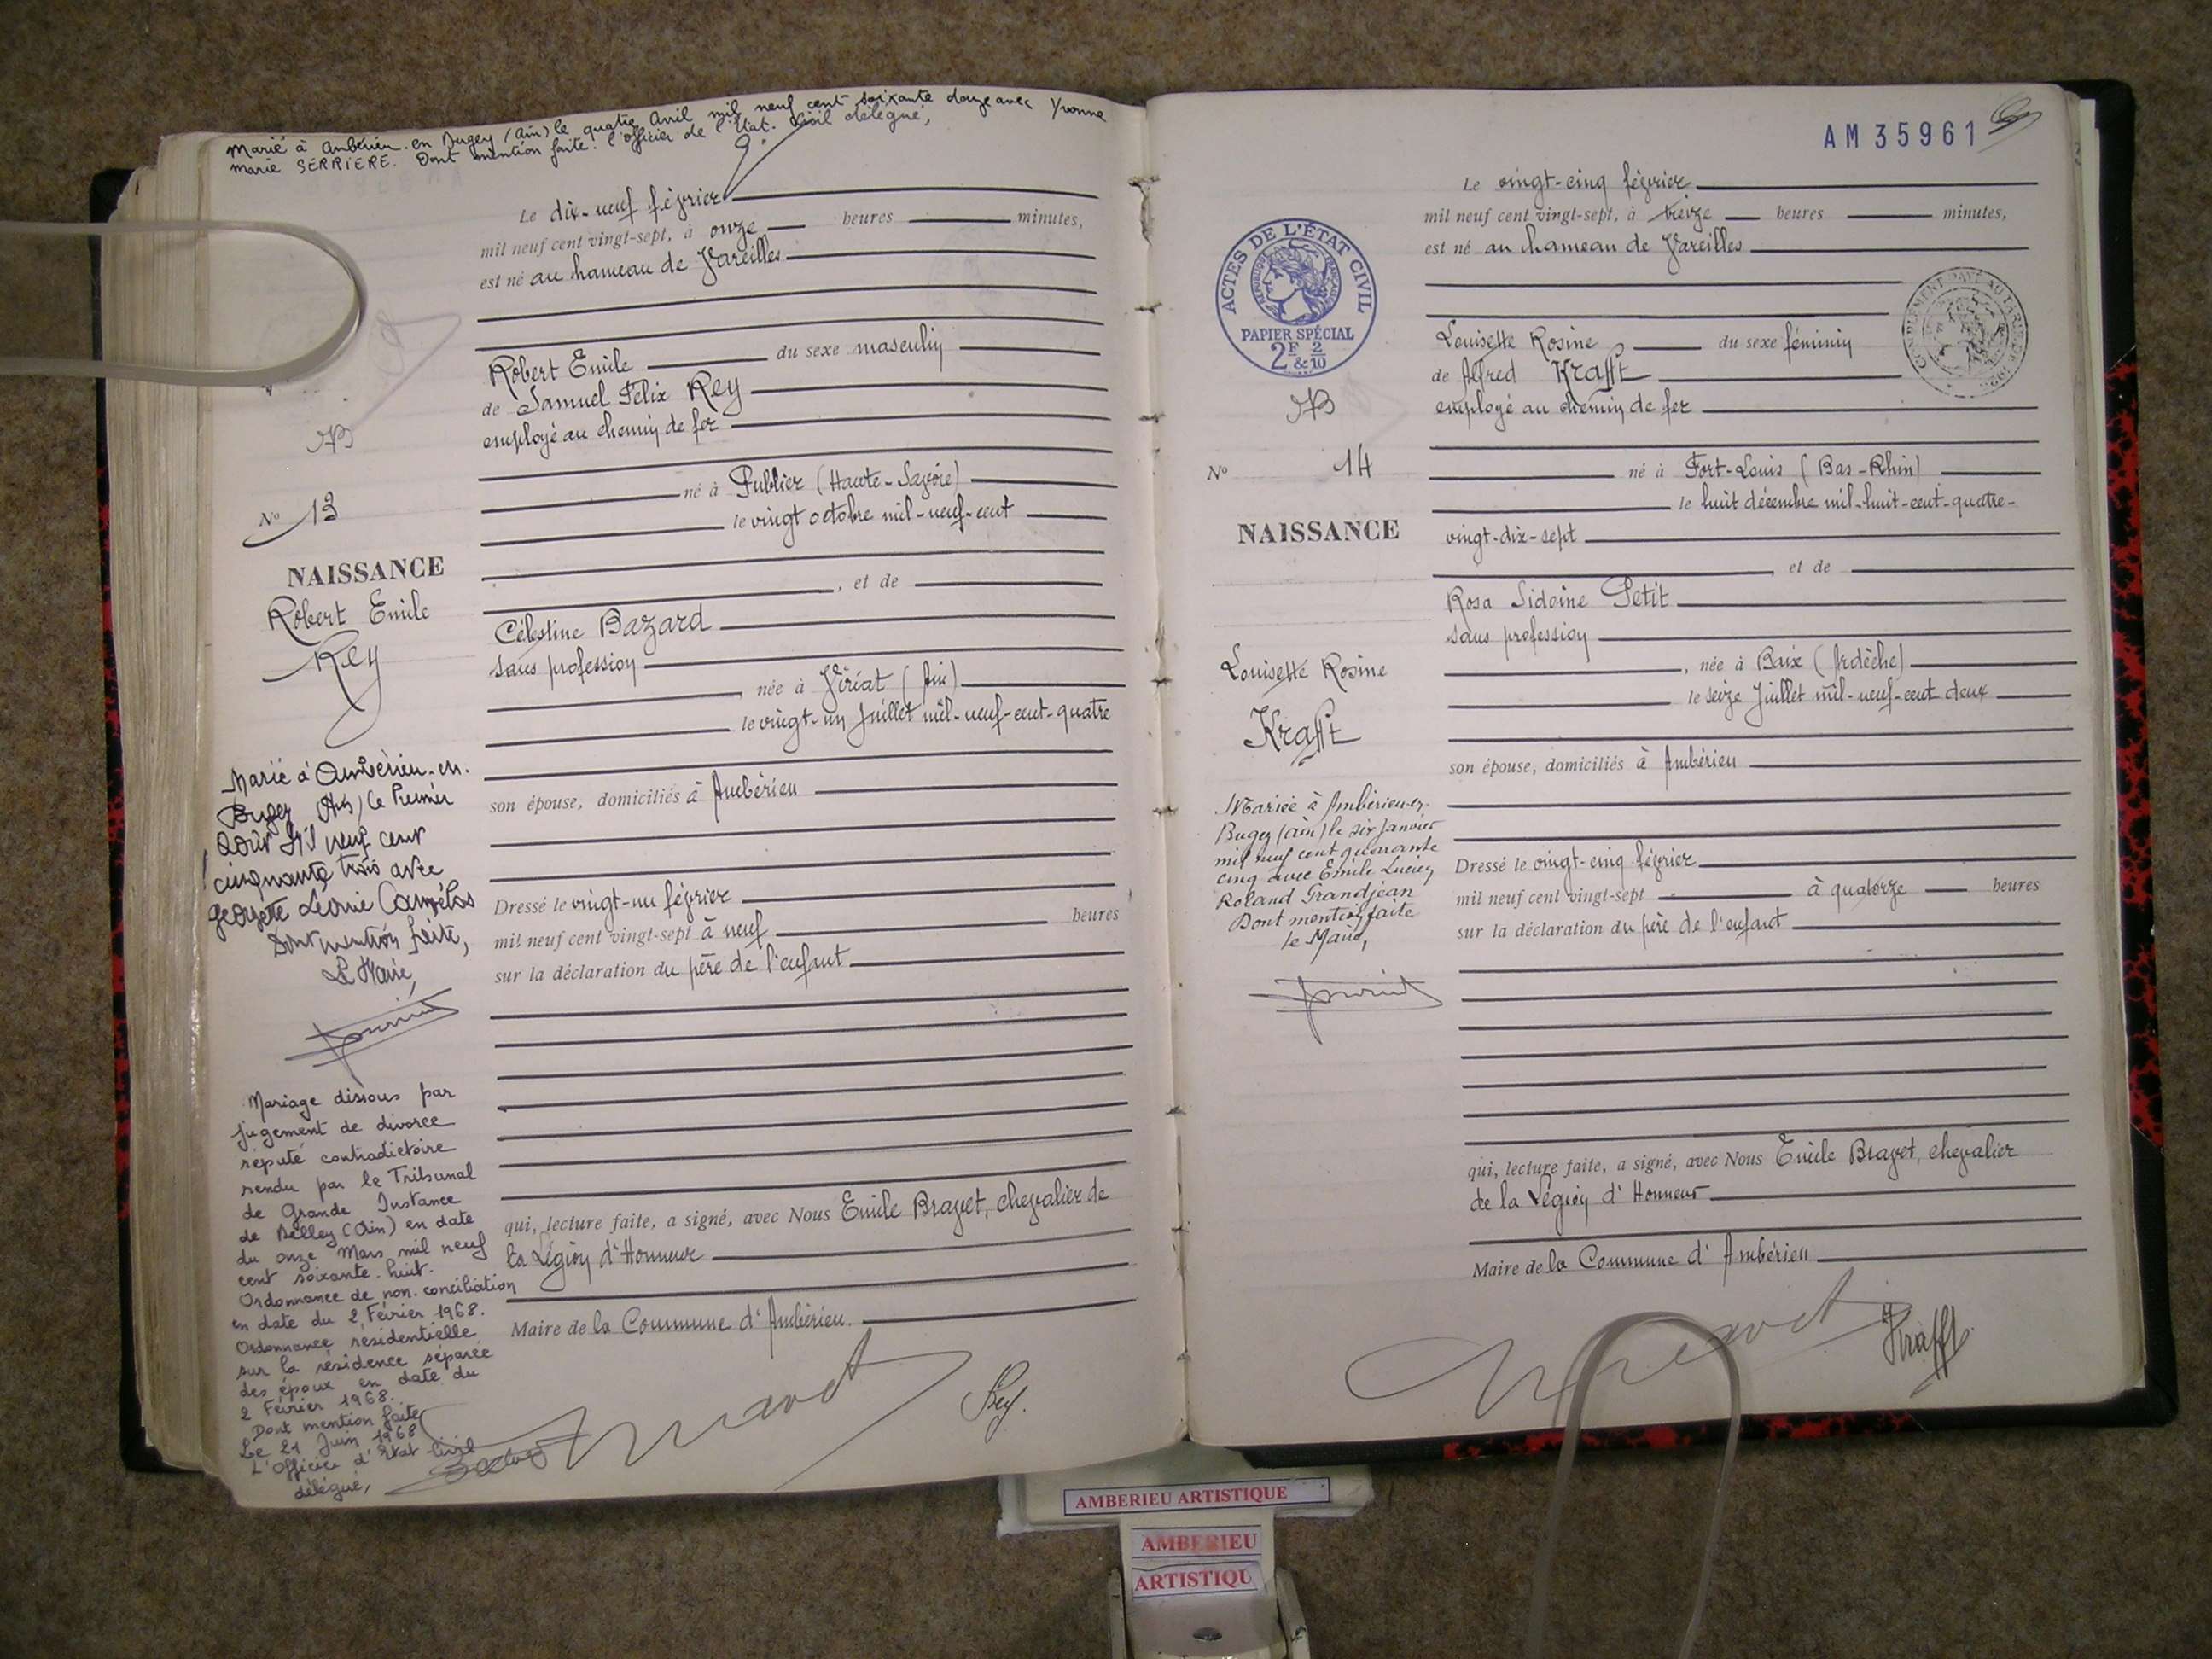 Marié à Ambérieu-en-Bugey (Ain) le quatre Avril mil neuf cent soixante douze avec Yvonne
Marie SERRIERE. Dont mention faite. L'officier de l'État-Civil délégué,
Le dix-neuf février
mil neuf cent vingt-sept, à onze heures minutes,
est né au hameau de Vareilles
Robert Emile du sexe masculin
de Samuel Félix Rey
employé au chemin de fer
né à Publier (Haute-Savoie)
le vingt octobre mil-neuf-cent
, et de
Célestine Bazard
sans profession
, née à Viriat (Ain)
le vingt-un Juillet mil-neuf-cent-quatre
son épouse, domiciliés à Ambérieu
Dressé le vingt-un février
mil neuf cent vingt-sept à neuf heures
sur la déclaration du père de l'enfant
qui, lecture faite, a signé, avec Nous Emile Bravet, chevalier de
la Légion d'Honneur
Maire de la Commune d'Ambérieu
Bravet
Rey.
No 13
NAISSANCE
Robert Emile
Rey
Marié à Ambérieu-en-
Bugey (Ain) le Premier
Août Mil neuf cent
cinquante trois avec
Georgette Léonie
Dont mention faite,
Le Maire,
Mariage dissous par
jugement de divorce
réputé contradictoire
rendu par le Tribunal
de Grande Instance
de Belley (Ain) en date
du onze Mars mil neuf
cent soixante-huit.
Ordonnance de non-conciliation
en date du 2 Février 1968.
Ordonnance résidentielle
sur la résidence séparée
des époux en date du
2 Février 1968.
Dont mention faite
Le 21 Juin 1968
L'Officier d'Etat Civil
délégué,
AM 35961
Le vingt-cinq février
mil neuf cent vingt-sept, à treize heures minutes,
est né au hameau de Vareilles
Louisette Rosine du sexe féminin
de Alfred Krafft
employé au chemin de fer
né à Fort-Louis (Bas-Rhin)
le huit décembre mil-huit-cent-quatre-
vingt-dix-sept
, et de
Rosa Sidoine Petit
sans profession
, née à Baix (Ardèche)
le seize Juillet mil-neuf-cent deux
son épouse, domiciliés à Ambérieu
Dressé le vingt-cinq février
mil neuf cent vingt-sept à quatorze heures
sur la déclaration du père de l'enfant
qui, lecture faite, a signé, avec Nous Emile Bravet, chevalier
de la Légion d'Honneur
Maire de la Commune d'Ambérieu
Bravet
Krafft
ACTES DE L'ÉTAT CIVIL
RÉPUBLIQUE FRANÇAISE
PAPIER SPÉCIAL
2F & 2/10
No 14
NAISSANCE
Louisette Rosine
Krafft
Mariée à Ambérieu-en-
Bugey (Ain) le six Janvier
mil neuf cent quarante
cinq avec Emile Lucien
Roland Grandjean
Dont mention faite
le Maire,
AMBERIEU ARTISTIQUE
AMBERIEU
ARTISTIQU